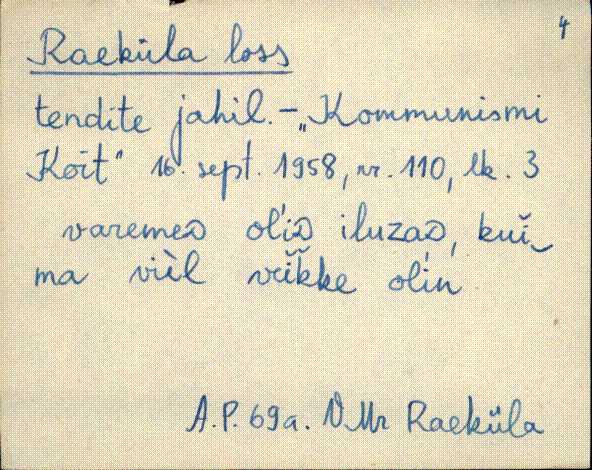 4
Raeküla loss
tendite jahil. – „Kommunismi
Koit" 16. sept. 1958, nr. 110, lk. 3
varemeᴅ oľiᴅ iluzaᴅ, kuĭ‿
ma vièl vε̆ikke oľin
A.P. 69a. VMr Raeküla